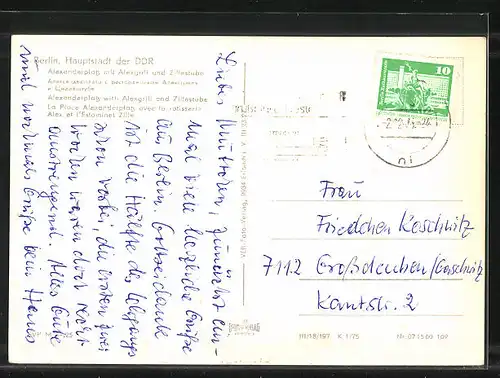 Berlin, Hauptstadt der DDR
Alexanderplatz mit Alexgrill und Zillestube
Alexanderplatz with Alexgrill and Zillestube
La Place Alexanderplatz avec la rôtisserie
Alex et l'Estaminet Zille
Liebes Muttchen, zunächst ein-
mal viele herzliche Grüße
aus Berlin. Gottseidank
ist die Hälfte des Lehrgangs
schon vorbei, die ersten zwei
Wochen waren doch recht
anstrengend. Alles Gute
und nochmals Grüße Dein Hans
10
Frau
Friedchen Koschnitz
7112 Großdeuben/Gaschwitz
Kantstr. 2
III/18/197 K 1/75
Nr. 07 15 00 109